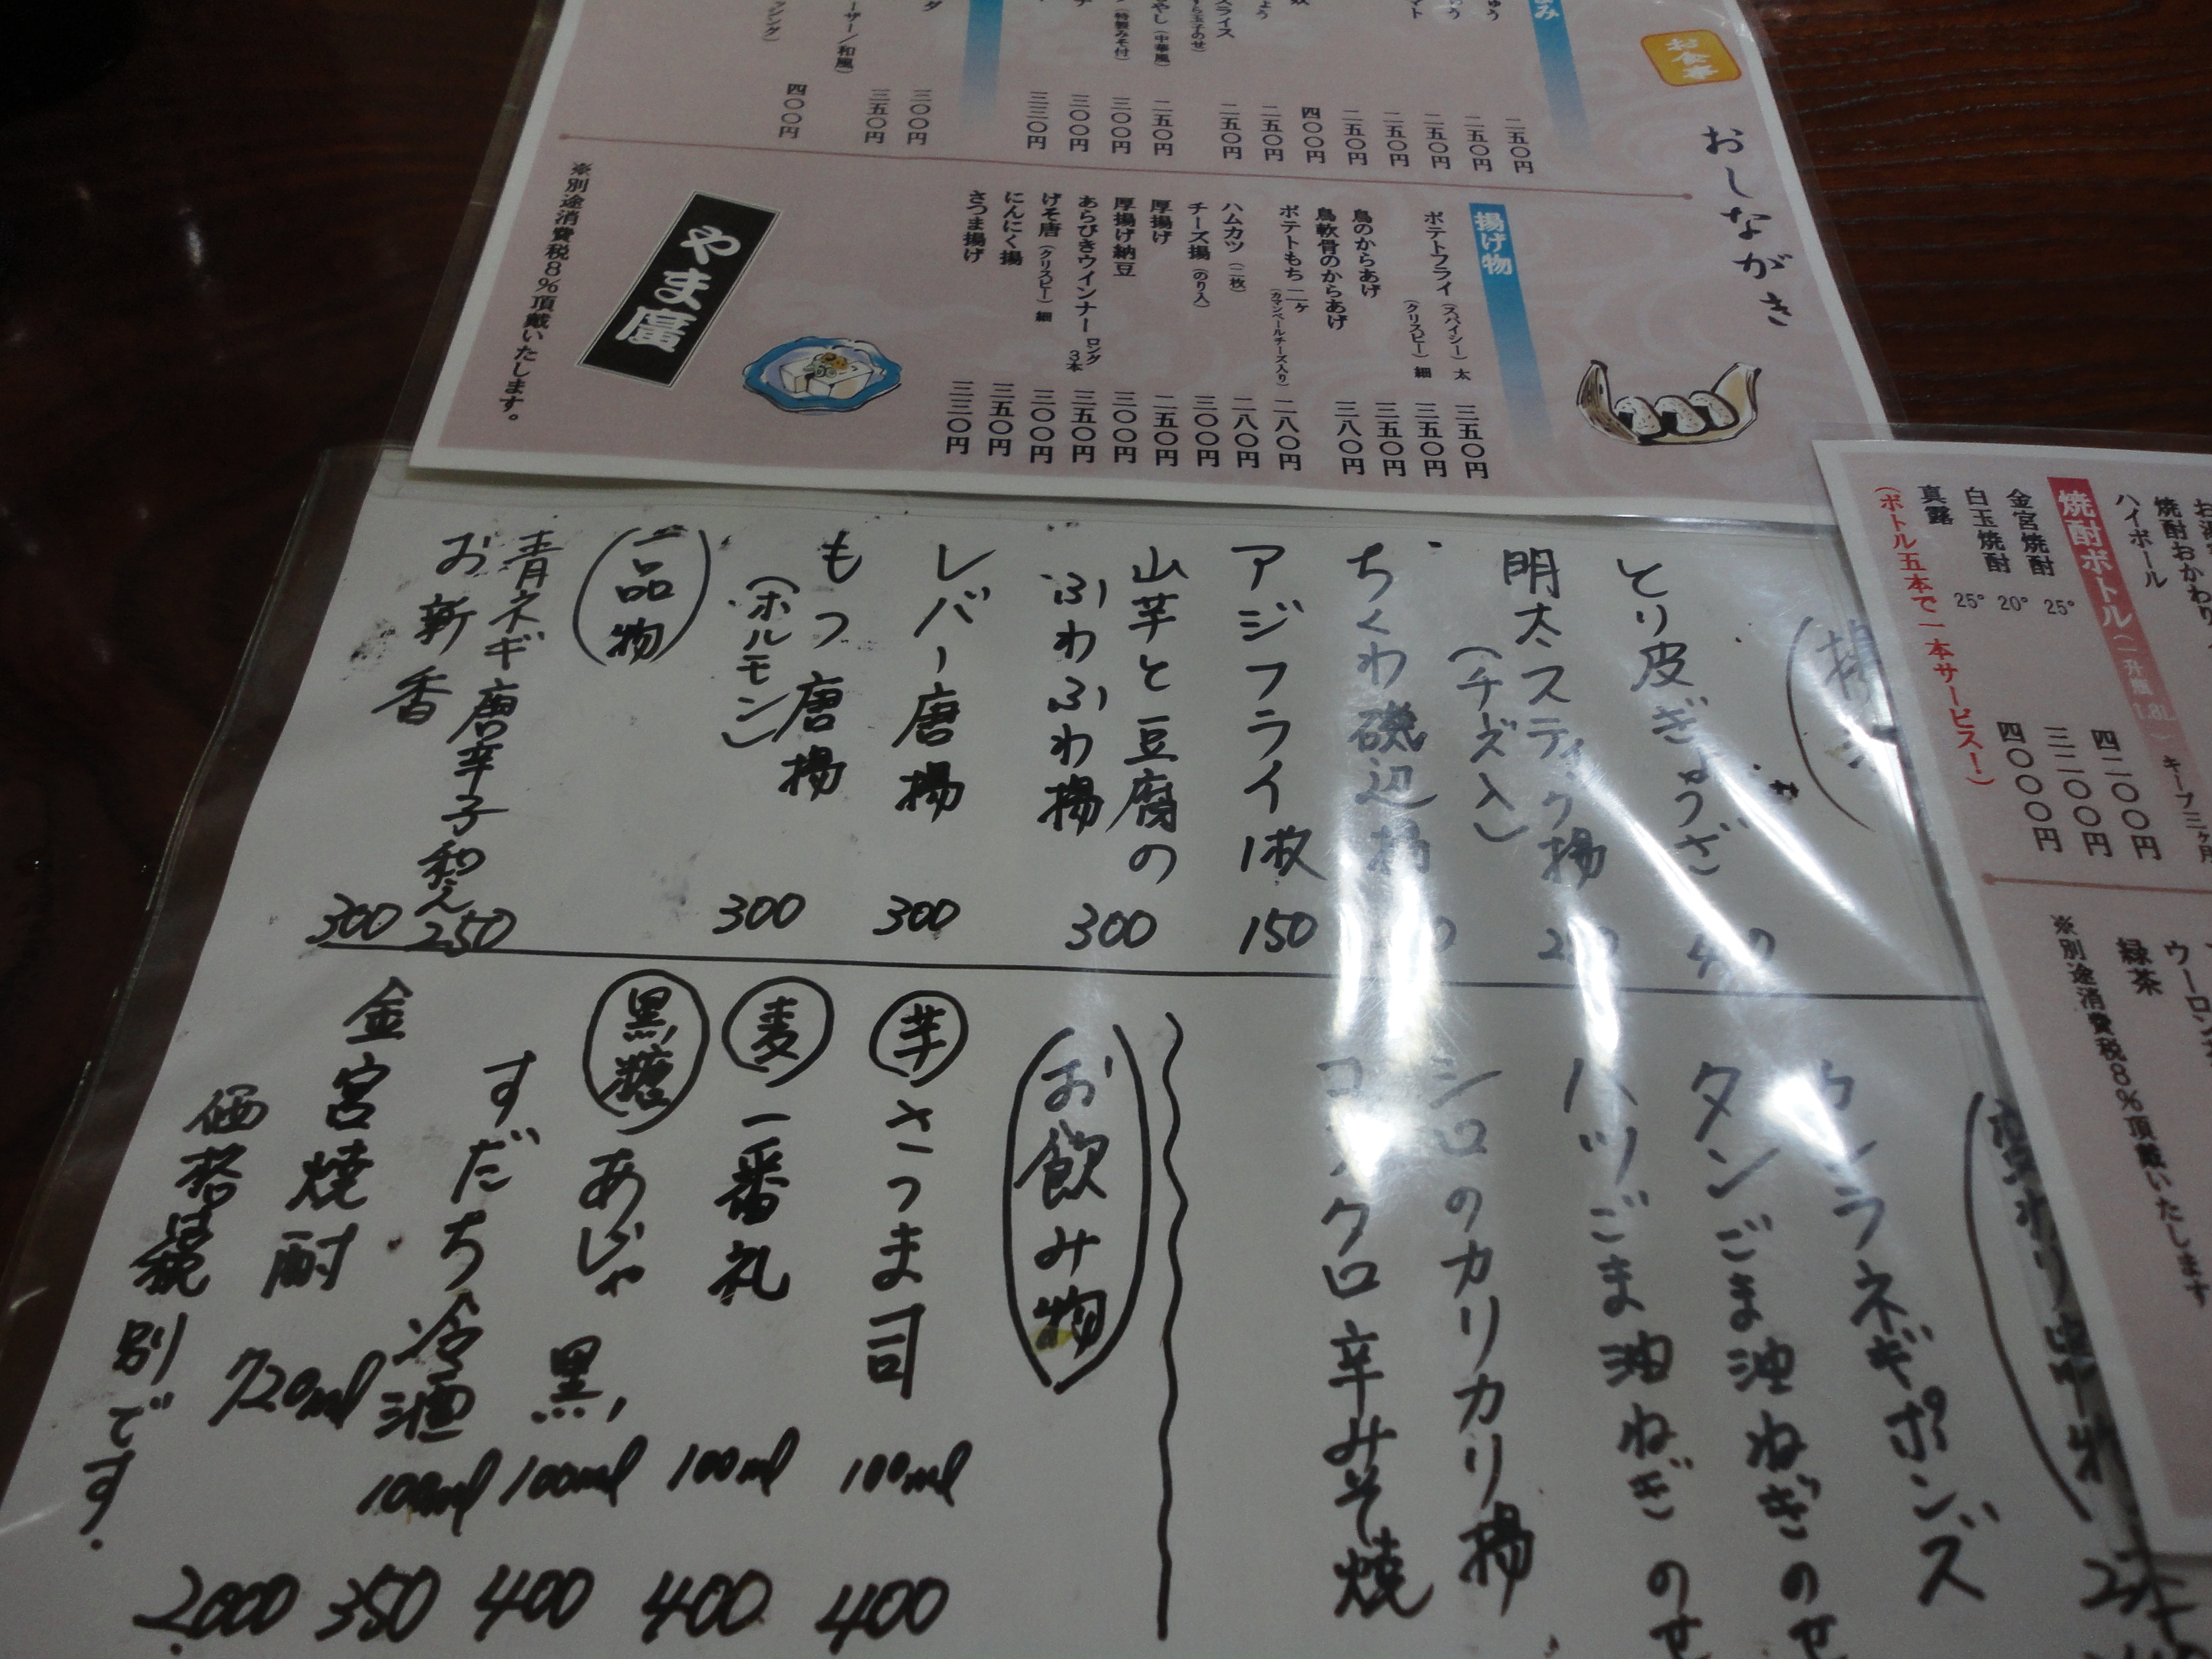 お食事
おしながき
二五〇円
二五〇円
二五〇円
二五〇円
二五〇円
四〇〇円
二五〇円
スライス
二五〇円
二五〇円
(特製みそ付)
三〇〇円
三〇〇円
三三〇円
三〇〇円
三五〇円
四〇〇円
揚げ物
ポテトフライ(スパイシー)太 三五〇円
(クリスピー)細 三五〇円
鳥のからあげ 三五〇円
鳥軟骨のからあげ 三八〇円
ポテトもち二ヶ(カマンベールチーズ入り) 二八〇円
ハムカツ(二枚) 二八〇円
チーズ揚(のり入) 三〇〇円
厚揚げ 二五〇円
厚揚げ納豆 三〇〇円
あらびきウインナーロング3本 三五〇円
げそ唐(クリスピー)細 三〇〇円
にんにく揚 三五〇円
さつま揚げ 三三〇円
やま廣
※別途消費税8%頂戴いたします。
焼酎おかわり
ハイボール
焼酎ボトル(一升瓶1.8L)キープ三ヶ月
金宮焼酎 25° 四二〇〇円
白玉焼酎 20° 三二〇〇円
真露 25° 四〇〇〇円
(ボトル五本で一本サービス!)
緑茶
※別途消費税8%頂戴いたします
とり皮ぎょうざ
明太スティック揚
(チーズ入)
ちくわ磯辺揚
アジフライ1枚 150
山芋と豆腐の
ふわふわ揚 300
レバー唐揚 300
もつ唐揚 300
(ホルモン)
一品物
青ネギ唐辛子和え 250
お新香 300
ネギポンズ
タンごま油ねぎのせ
ハツごま油ねぎのせ
シロのカリカリ揚
コブクロ辛みそ焼
お飲み物
芋 さつま司 100ml 400
麦 一番札 100ml 400
黒糖 あじゃ黒 100ml 400
すだち冷酒 100ml 350
金宮焼酎 720ml 2000
価格税別です.